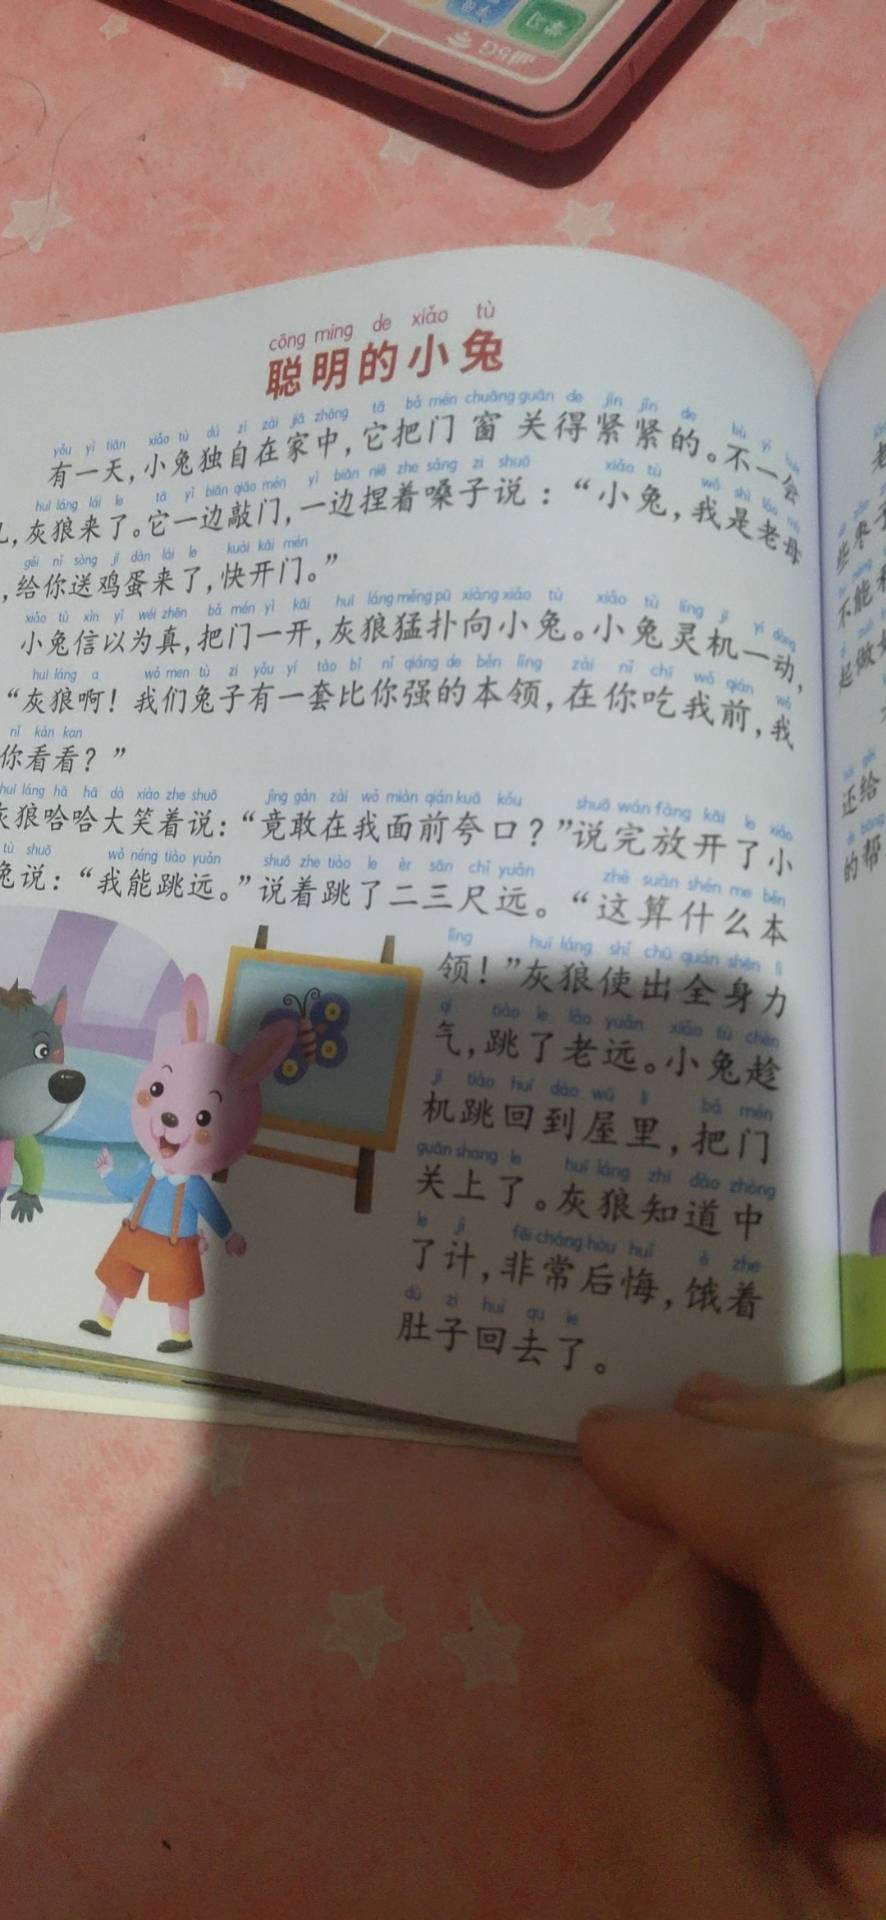 5G
cōng míng de xiǎo tù
聪明的小兔
yǒu yì tiān xiǎo tù dú zì zài jiā zhōng tā bǎ mén chuāng guān de jǐn jǐn de bù yí
有一天，小兔独自在家中，它把门窗关得紧紧的。不一会
huī láng lái le tā yì biān qiāo mén yì biān niē zhe sǎng zi shuō xiǎo tù wǒ shì lǎo mǔ
，灰狼来了。它一边敲门，一边捏着嗓子说：“小兔，我是老母
gěi nǐ sòng jī dàn lái le kuài kāi mén
，给你送鸡蛋来了，快开门。”
xiǎo tù xìn yǐ wéi zhēn bǎ mén yì kāi huī láng měng pū xiàng xiǎo tù xiǎo tù líng jī yí dòng
小兔信以为真，把门一开，灰狼猛扑向小兔。小兔灵机一动，
huī láng a wǒ men tù zi yǒu yí tào bǐ nǐ qiáng de běn lǐng zài nǐ chī wǒ qián wǒ
“灰狼啊！我们兔子有一套比你强的本领，在你吃我前，我
nǐ kàn kan
你看看？”
huī láng hā hā dà xiào zhe shuō jìng gǎn zài wǒ miàn qián kuā kǒu shuō wán fàng kāi le xiǎo
灰狼哈哈大笑着说：“竟敢在我面前夸口？”说完放开了小
tù shuō wǒ néng tiào yuǎn shuō zhe tiào le èr sān chǐ yuǎn zhè suàn shén me běn
兔说：“我能跳远。”说着跳了二三尺远。“这算什么本
lǐng huī láng shǐ chū quán shēn lì
领！”灰狼使出全身力
qì tiào le lǎo yuǎn xiǎo tù chèn
气，跳了老远。小兔趁
jī tiào huí dào wū lǐ bǎ mén
机跳回到屋里，把门
guān shang le huī láng zhī dào zhòng
关上了。灰狼知道中
le jì fēi cháng hòu huǐ è zhe
了计，非常后悔，饿着
dù zi huí qu le
肚子回去了。
些枣子
不能
起做
还给
的帮